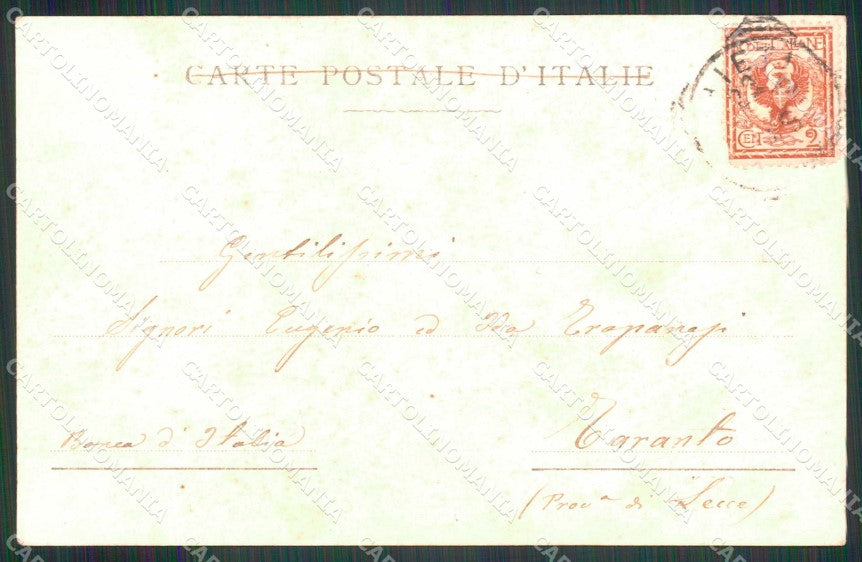 CARTE POSTALE D'ITALIE
CEN 2
Gentilissimi
Signori Eugenio ed Ida Trapanesi
Banca d'Italia
Taranto
(Prov.a di Lecce)
CARTOLINOMANIA